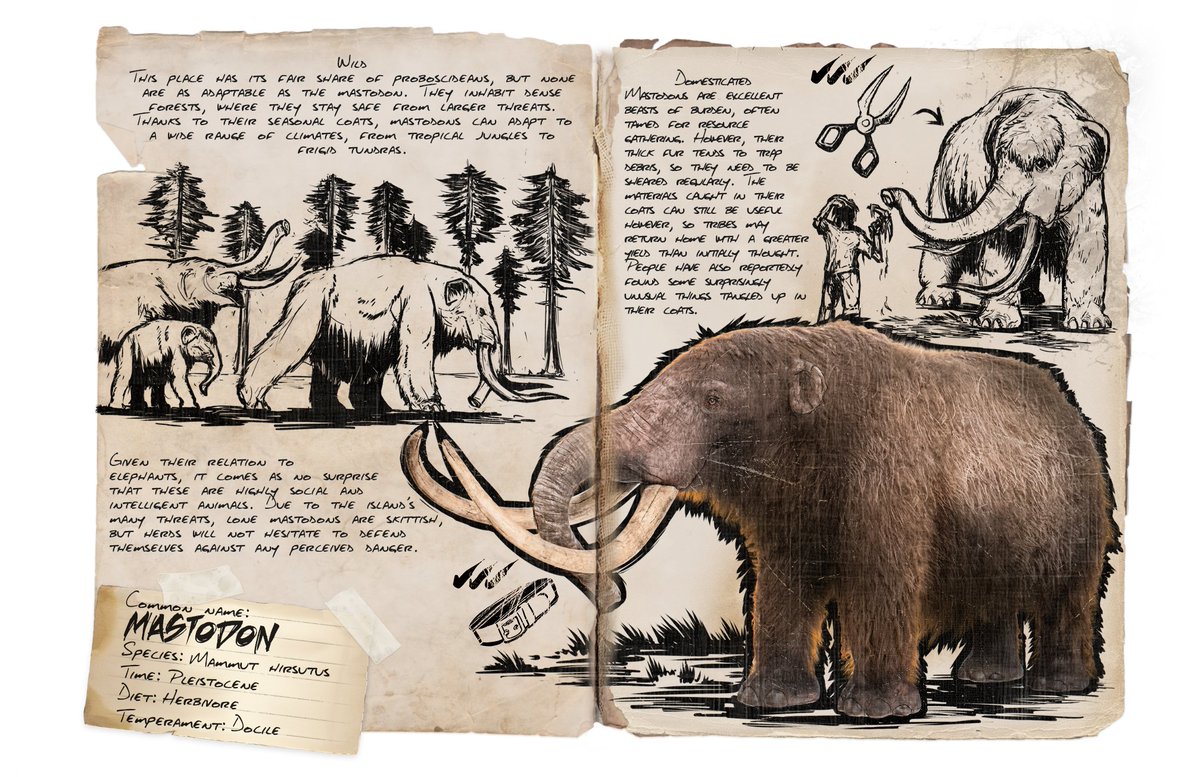 Wild
This place has its fair share of proboscideans, but none
are as adaptable as the mastodon. They inhabit dense
forests, where they stay safe from larger threats.
Thanks to their seasonal coats, mastodons can adapt to
a wide range of climates, from tropical jungles to
frigid tundras.
Given their relation to
elephants, it comes as no surprise
that these are highly social and
intelligent animals. Due to the island's
many threats, lone mastodons are skittish,
but herds will not hesitate to defend
themselves against any perceived danger.
Common name:
Mastodon
Species: Mammut hirsutus
Time: Pleistocene
Diet: Herbivore
Temperament: Docile
Domesticated
Mastodons are excellent
beasts of burden, often
tamed for resource
gathering. However, their
thick fur tends to trap
debris, so they need to be
sheared regularly. The
materials caught in their
coats can still be useful
however, so tribes may
return home with a greater
yield than initially thought.
People have also reportedly
found some surprisingly
unusual things tangled up in
their coats.